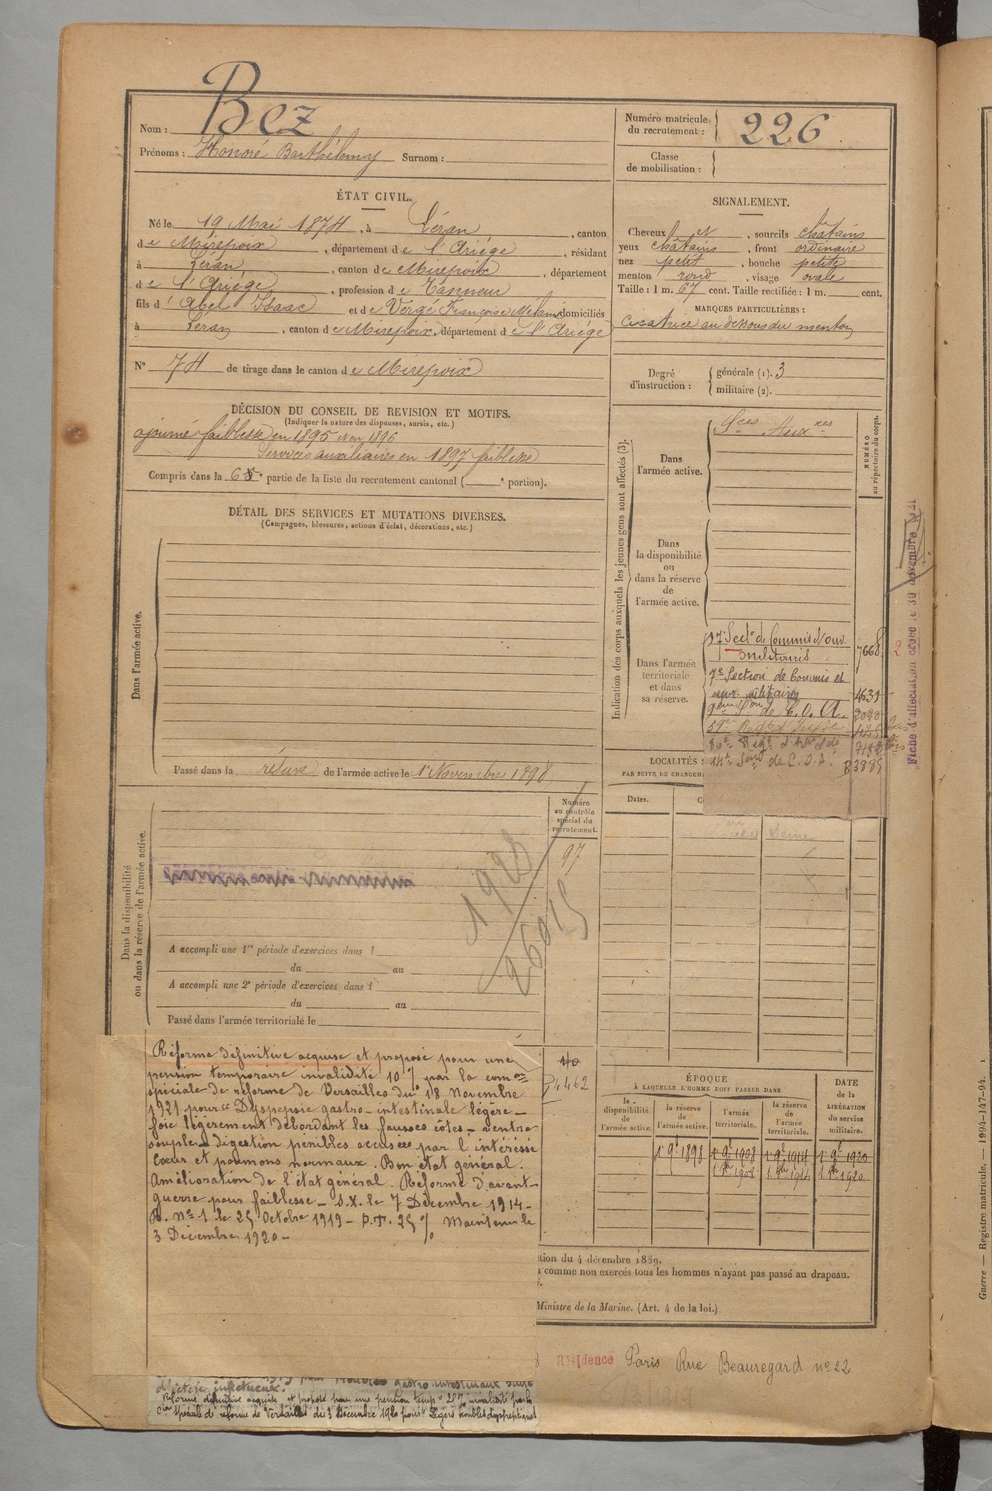 Nom : Bez
Prénoms : Honoré Barthélemy Surnom :
Numéro matricule du recrutement : 226
Classe de mobilisation :
ÉTAT CIVIL.
Né le 19 Mai 1874, à Léran, canton
de Mirepoix, département de l'Ariége, résidant
à Léran, canton de Mirepoix, département
de l'Ariége, profession de Tanneur
fils d'Abel Isaac et de Verge Françoise Mélanie domiciliés
à Léran, canton de Mirepoix, département de l'Ariége
N° 74 de tirage dans le canton de Mirepoix
SIGNALEMENT.
Cheveux et, sourcils châtains
yeux châtains, front ordinaire
nez petit, bouche petite
menton rond, visage ovale
Taille : 1 m. 67 cent. Taille rectifiée : 1 m. cent.
MARQUES PARTICULIÈRES :
Cicatrice au dessous du menton
Degré d'instruction : générale (1). 3
militaire (2).
DÉCISION DU CONSEIL DE REVISION ET MOTIFS.
(Indiquer la nature des dispenses, sursis, etc.)
ajourné faiblesse en 1895 et en 1896
Services auxiliaires en 1897 faiblesse
Compris dans la 6e partie de la liste du recrutement cantonal ( e portion).
DÉTAIL DES SERVICES ET MUTATIONS DIVERSES.
(Campagnes, blessures, actions d'éclat, décorations, etc.)
Dans l'armée active.
Passé dans la réserve de l'armée active le 1er Novembre 1898
Indication des corps auxquels les jeunes gens sont affectés (3).
NUMÉRO au répertoire du corps.
Dans l'armée active.
Sces Auxres
Dans la disponibilité ou dans la réserve de l'armée active.
Dans l'armée territoriale et dans sa réserve.
17e Secton de Commis et ouv.
militaires. 7668
7e Section de Commis et
ouvr. militaires 4631
de C.O.A.
de C.O.A. R3885
Fiche d'affectation
LOCALITÉS
PAR SUITE DE CHANGEM
Dates.
Dans la disponibilité ou dans la réserve de l'armée active.
Numéro au contrôle spécial du recrutement.
97
1923
26015
A accompli une 1re période d'exercices dans l
du au
A accompli une 2e période d'exercices dans l
du au
Passé dans l'armée territoriale le
Réforme définitive acquise et proposé pour une
pension temporaire invalidité 10 % par la comon
spéciale de réforme de Versailles du 18 Novembre
1921 pour "Dyspepsie gastro-intestinale légère –
foie légèrement débordant les fausses côtes – ventre
souple – digestion pénibles accusées par l'intéressé
Cœur et poumons normaux. Bon état général.
Amélioration de l'état général. Réformé d'avant-
guerre pour faiblesse – S.X. le 7 Décembre 1914 –
R. N° 1 le 25 Octobre 1919 – P.T. 25 % Maintenu le
3 Décembre 1920 –
4462
ÉPOQUE
À LAQUELLE L'HOMME DOIT PASSER DANS
DATE de la LIBÉRATION du service militaire.
la disponibilité de l'armée active.
la réserve de l'armée active.
l'armée territoriale.
la réserve de l'armée territoriale.
1 9bre 1898 1 9bre 1908 1 9bre 1914 1 9bre 1920
tion du 4 décembre 1889.
comme non exercés tous les hommes n'ayant pas passé au drapeau.
Ministre de la Marine. (Art. 4 de la loi.)
Résidence Paris Rue Beauregard n° 22
d'ictère infectieux.
Réforme définitive acquise et proposé pour une pension temp.
spéciale de réforme de Versailles du 3 décembre 1920 pour "Légers troubles dyspeptiques
Guerre — Registre matricule. — 1994-147-94.